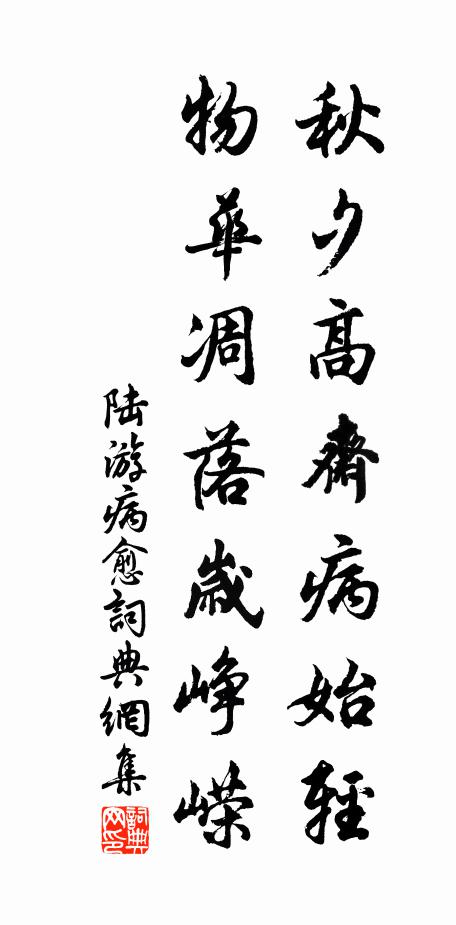 秋夕高齋病始輕
物華凋落歲崢嶸
陸游病愈詞典網集
詞典网印